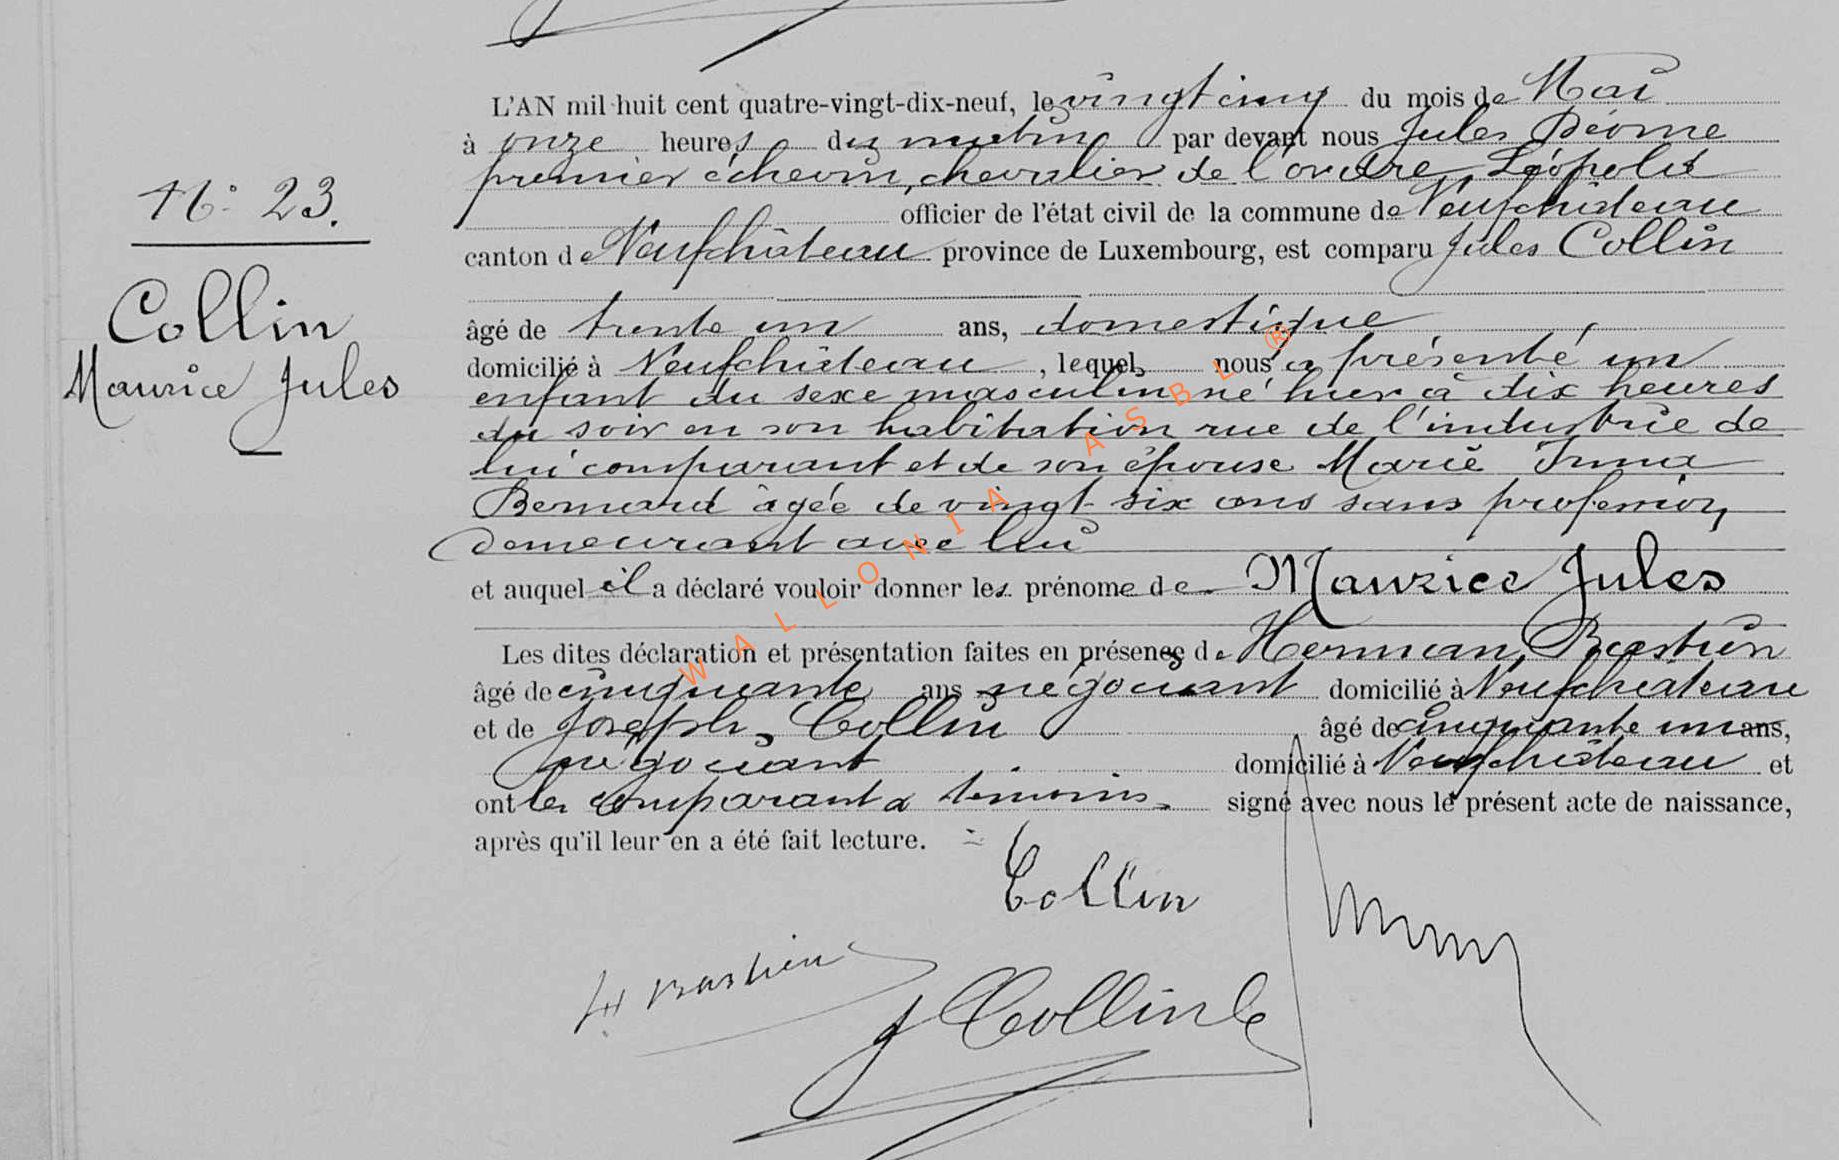 N° 23.
Collin
Maurice Jules
L'AN mil huit cent quatre-vingt-dix-neuf, le vingt cinq du mois de Mai
à onze heures du matin par devant nous Jules Déome
premier échevin, chevalier de l'ordre Léopold
officier de l'état civil de la commune de Neufchâteau
canton de Neufchâteau province de Luxembourg, est comparu Jules Collin
âgé de trente un ans, domestique
domicilié à Neufchâteau, lequel nous a présenté un
enfant du sexe masculin né hier à dix heures
du soir en son habitation rue de l'industrie de
lui comparant et de son épouse Marie Irma
Bernard âgée de vingt six ans sans profession,
demeurant avec lui
et auquel il a déclaré vouloir donner les prénoms de Maurice Jules
Les dites déclaration et présentation faites en présence de Herman, Bastien
âgé de cinquante ans négociant domicilié à Neufchâteau
et de Joseph, Collin âgé de cinquante un ans,
négociant domicilié à Neufchâteau et
ont les comparant & témoins signé avec nous le présent acte de naissance,
après qu'il leur en a été fait lecture.
Collin
H Bastien
J Collin
WALLONIA ASBL ®